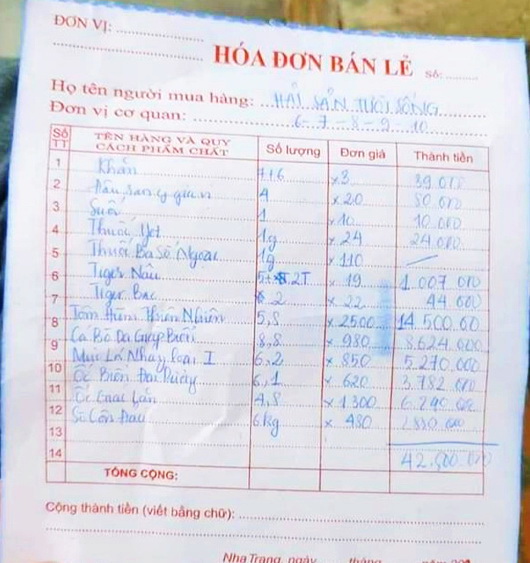 ĐƠN VỊ: ....................
....................
HÓA ĐƠN BÁN LẺ Số: ..........
Họ tên người mua hàng: HẢI SẢN TƯƠI SỐNG
Đơn vị cơ quan: 6-7-8-9 10
Số TT TÊN HÀNG VÀ QUY CÁCH PHẨM CHẤT Số lượng Đơn giá Thành tiền
1 Khăn 7+6 x3 39.000
2 4 x20 80.000
3 Suối 1 x10 10.000
4 Thuốc Jet 1g x24 24.000
5 Thuốc Ba Số Ngoại 1g x110
6 Tiger Nâu 2T x19 1.007 000
7 Tiger Bạc 2 x22 44 000
8 Tôm Hùm Thiên Nhiên 5,8 x2500 14 500.00
9 Cá Bò Da Giáp Biển 8,8 x980 8.624.000
Mực Lá Nháy Loại I 6,2 x850 5.270 000
10 Ốc Biển 6,1 x620 3.782 000
11 Ốc 4,8 x1300 6.240 000
12 6kg x480 2.880 000
13
14 42.500 000
TỔNG CỘNG:
Cộng thành tiền (viết bằng chữ): ....................
Nha Trang, ngày ........ tháng ........ năm 200